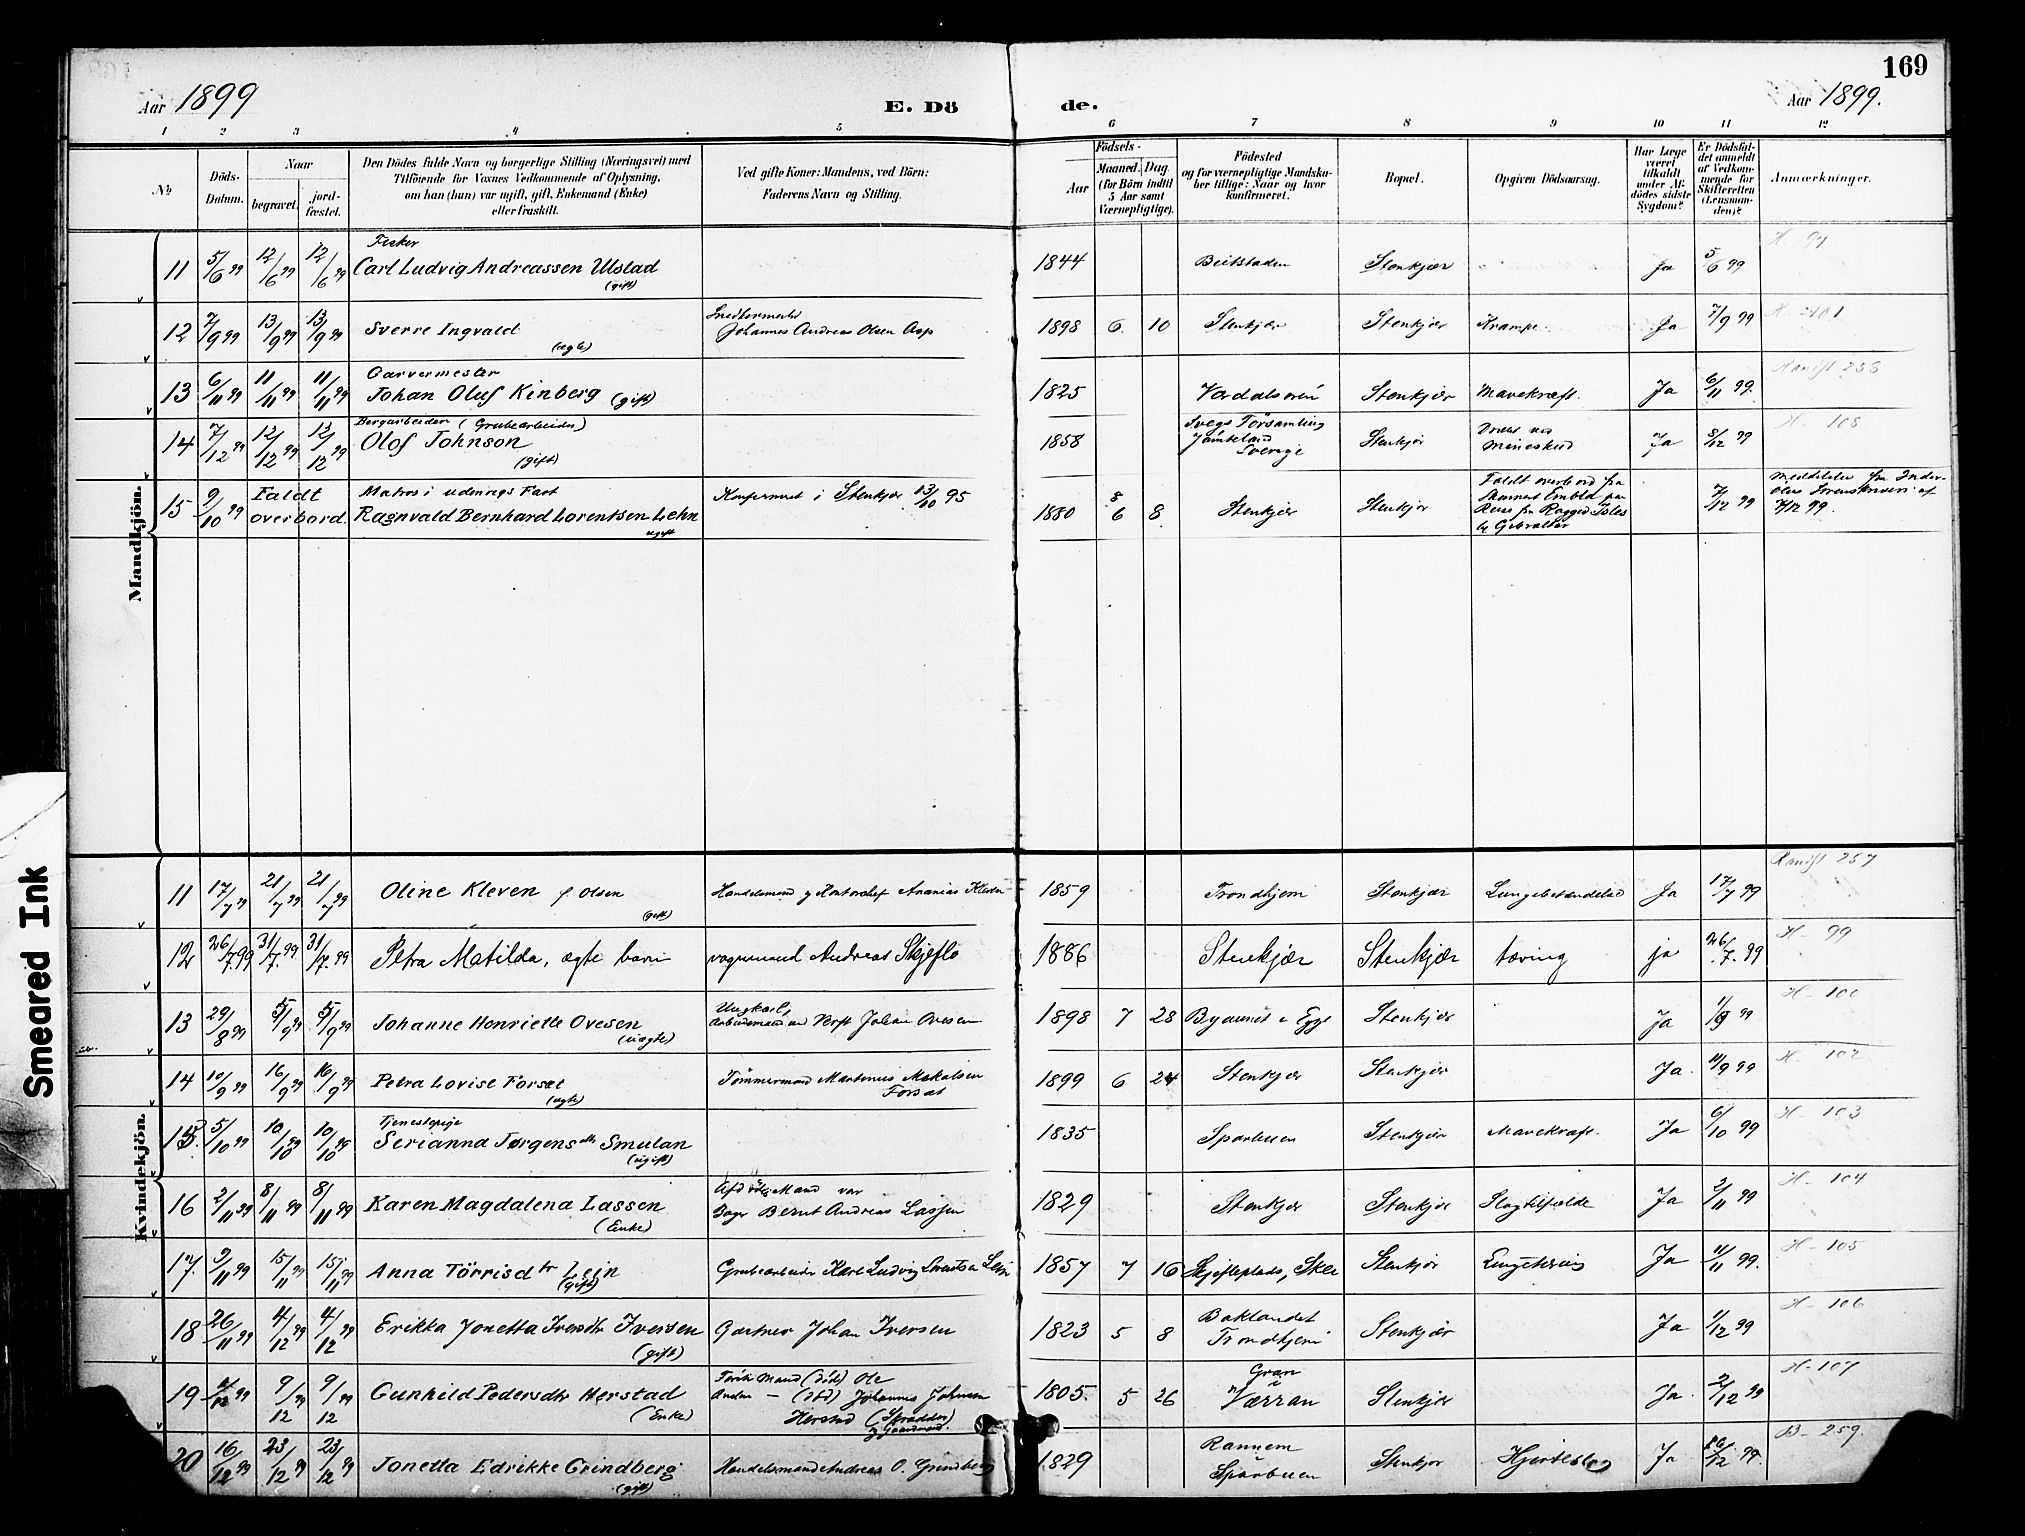 169
Aar 1899
E. Dö
de.
Aar 1899.
1 2 3 4 5 6 7 8 9 10 11 12
№
Döds-Datum.
Naar
begravet.
jord-fæstet.
Den Dödes fulde Navn og borgerlige Stilling (Næringsvei) med
Tilföiende for Voxnes Vedkommende af Oplysning,
om han (hun) var ugift, gift, Enkemand (Enke)
eller fraskilt.
Ved gifte Koner: Mandens, ved Börn:
Faderens Navn og Stilling.
Födsels-
Aar
Maaned. Dag.
(for Börn indtil
5 Aar samt
Værnepligtige).
Födested
og for værnepligtige Mandska-
ber tillige: Naar og hvor
konfirmeret.
Bopæl.
Opgiven Dödsaarsag.
Har Læge
været
tilkaldt
under Af-
dödes sidste
Sygdom?
Er Dödsfal-
det anmeldt
af Vedkom-
mende for
Skifteretten
(Lensman-
den)?
Anmærkninger.
Mandkjön.
Fisker
11 5/6 99 12/6 99 12/6 99 Carl Ludvig Andreassen Ulstad 1844 Beitstaden Stenkjær Ja 5/6 99 H- 97
(gift)
Snedkermester
12 7/9 99 13/9 99 13/9 99 Sverre Ingvald Johannes Andreas Olsen Asp 1898 6. 10 Stenkjær Stenkjær Krampe. Ja 7/9 99 H- 101
(ægte)
Garvermester
13 6/11 99 11/11 99 11/11 99 Johan Oluf Kinberg (gift) 1825 Værdalsøren Stenkjær Mavekræft. Ja 6/11 99. Ranist 258
Bergarbeider (Grubearbeider)
14 7/12 99 12/12 99 12/12 99 Olof Johnson 1858 Svegs Församling Jämtland Sverige Stenkjær Dræbt ved Mineskud Ja 8/12 99 H- 108
(gift)
15 9/10 99 Faldt overbord. Matros i udenrigs Fart
Ragnvald Bernhard Lorentsen Lehn Konfirmeret i Stenkjær 13/10 95 1880 8 6 8 Stenkjær Stenkjær Faldt overbord fra
Reise fra Ragged Isles
til Gibraltar 7/12 99 Meddelelse fra Inder-
øens Sorenskriveri af
7/12 99.
ugift
Kvindekjön.
11 17/7 99 21/7 99 21/7 99 Oline Kleven f. Olsen Handelsmand og Kontorchef Ananias Kleven 1859 Trondhjem Stenkjær Lungebetændelse Ja 17/7 99 Ranist 257
(gift)
12 26/7. 99 31/7. 99. 31/7. 99 Petra Matilda, ægte barn vognmand Andreas Skjeflo 1886 Stenkjær Stenkjær tæring ja 26/7. 99 H- 99
Ungkarl,
13 29/8 99 5/9 99 5/9 99 Johanne Henriette Ovesen Arbeidsmand ved Verft Johan Ovesen 1898 7 28 Byaunet i Egge Stenkjær ja 1/9 99 H- 100
(uægte)
14 10/9 99 16/9 99 16/9 99 Petra Lovise Forset Tömmermand Martinus Mikalsen Forset 1899 6 24 Stenkjær Stenkjær Ja. 11/9 99 H- 102
(ægte)
Tjenestepige
15. 5/10 99 10/10 99 10/10 95 Serianna Jørgensdtr Smulan 1835 Sparbuen Stenkjær Mavekræft. Ja 6/10 99 H- 103
(ugift)
Afdödes Mand var
16 2/11 99 8/11 99 8/11 99 Karen Magdalena Lassen Bager Bernt Andreas Lassen 1829 Stenkjær Stenkjær Slagtilfælde Ja 2/11 99 H- 104
(Enke)
17. 9/11 99 15/11 99 15/11 99 Anna Törrisdtr Lein Grubearbeider Karl Ludvig Lorentsen Lein 1857 7 16 Skjefteplads, Skei Stenkjær Ja 11/11 99. H- 105
(gift)
18 26/11 99 4/12 99 4/12 99 Erikka Jonetta Iversdtr Iversen Gartner Johan Iversen 1823 5 8 Baklandet Trondhjem Stenkjær Ja 1/12 99 H- 106
(gift)
19 99 9/12 99 9/12 99 Gunhild Pedersdtr Herstad 1ste Mand (död) Ole
Anden — (död) Johannes Johnsen
Herstad (Skrædder)
og Gaardmand. 1805. 5 26 Gran i Værran Stenkjær Ja. 2/12 99 H- 107
(Enke)
20 16/12 99 23/12 99 23/12 99 Jonetta Edrikke Grindberg Handelsmand Andreas O. Grindberg 1829 Rannem Sparbuen Stenkjær Hjerteslag Ja 16/12 99. B- 259.
(gift)
Smeared Ink